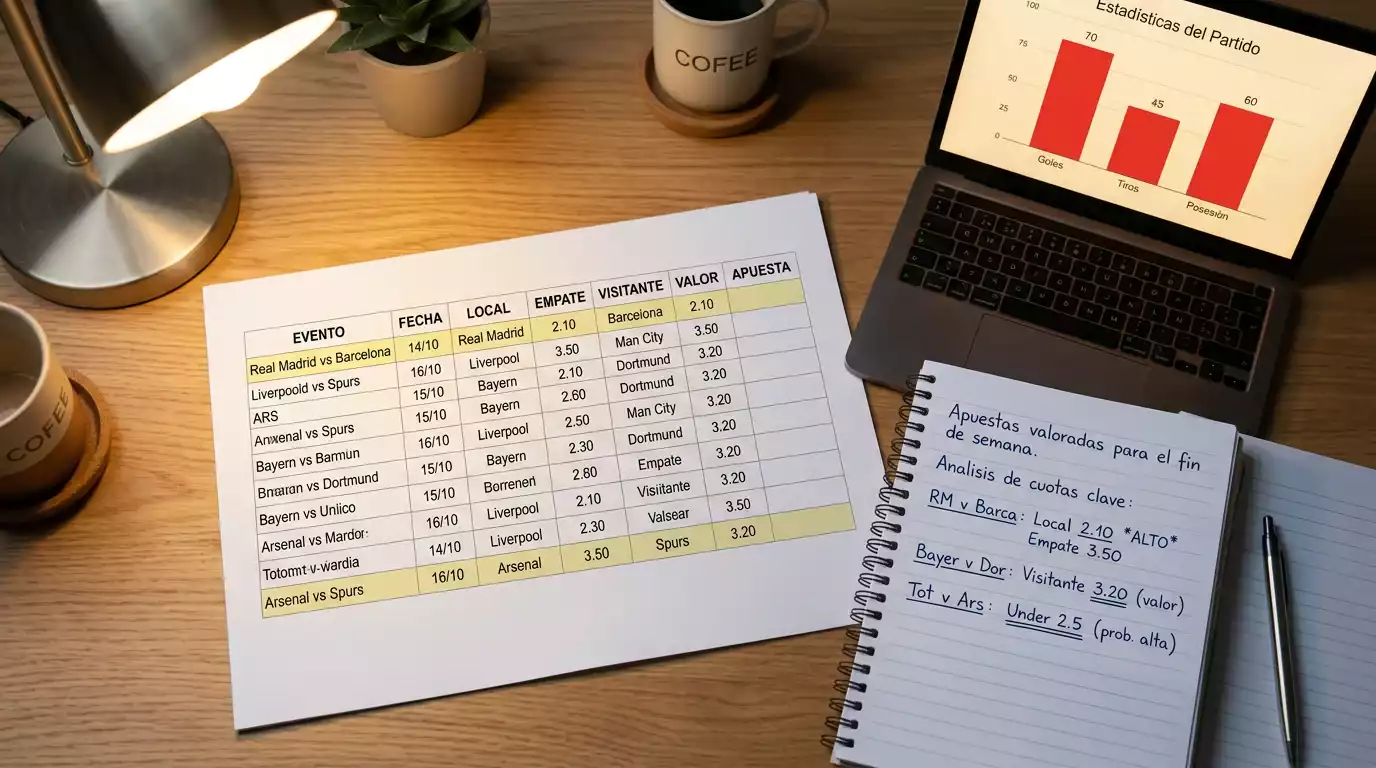 COFEE
Estadísticas del Partido
100
75
50
25
0
70
45
60
Goles
Tiros
Posesión
COFEE
EVENTO FECHA LOCAL EMPATE VISITANTE VALOR APUESTA
Real Madrid vs Barcelona 14/10 Real Madrid 2.10 Barcelona 2.10
Liverpoold vs Spurs 16/10 Liverpool 3.50 Man City 3.50
ARS 15/10 Bayern 2.10 Dortmund 3.20
Anwenal vs Spurs 15/10 Bayern 2.60 Dortmund 3.20
Bayern vs Barmun 16/10 Liverpool 2.50 Man City 3.20
vs Dortmund 15/10 Bayern 2.30 Dortmund 3.20
Bayern vs Unlico 15/10 Borrenerl 2.80 Empate 3.20
Arsenal vs Mardor: 16/10 Liverpool 2.10 Visiitante 3.20
14/10 Liverpool 2.30 Valsear 3.50
Arsenal vs Spurs 16/10 Arsenal 3.50 Spurs 3.20
Apuestas valoradas para el fin
de semana.
Analisis de cuotas clave:
RM v Barca: Local 2.10 *ALTO*
Empate 3.50
Bayer v Dor: Visitante 3.20 (valor)
Tot v Ars: Under 2.5 (prob. alta)